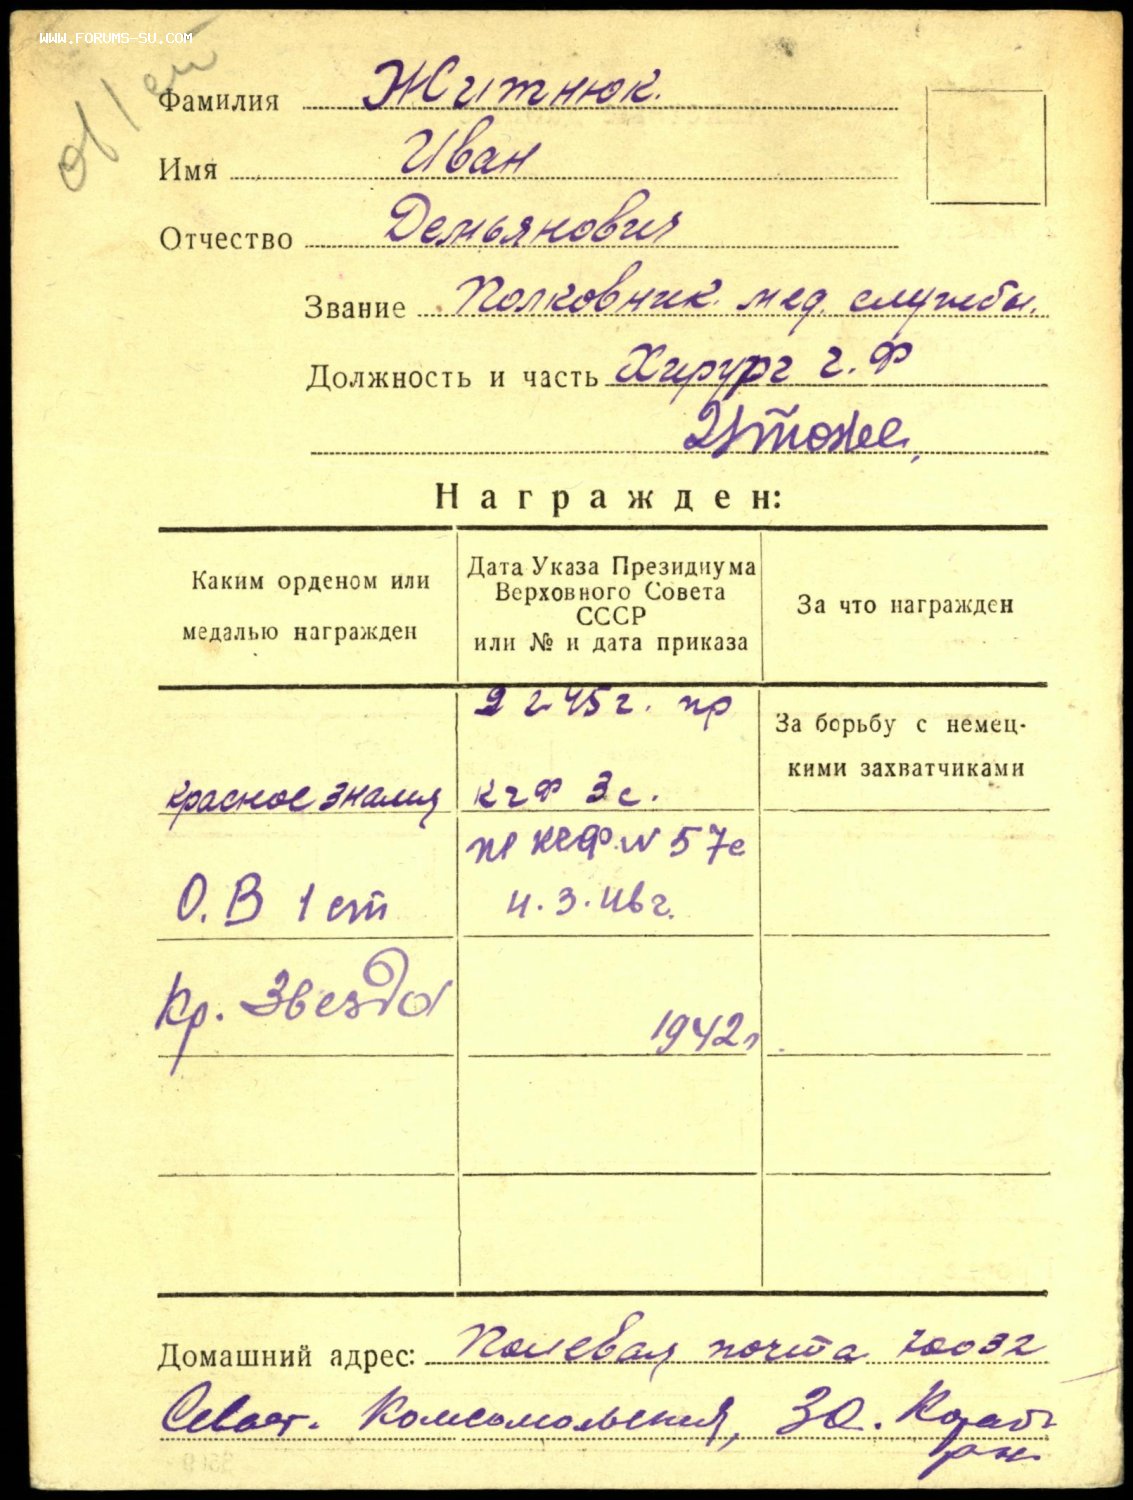 WWW.FORUMS-SU.COM
Фамилия Житнюк.
Имя Иван
Отчество Демьянович
Звание Полковник мед. службы.
Должность и часть Хирург ч.Ф
Награжден:
Каким орденом или
медалью награжден
Дата Указа Президиума
Верховного Совета
СССР
или № и дата приказа
За что награжден
45г. пр
Красное знамя
КЧФ 3с.
За борьбу с немец-
кими захватчиками
О.В 1 ст
пр КЧФ. N 57с
4.3.46г.
Кр. Звезда
1942г
Домашний адрес: Полевая почта 70032
Севаст. Комсомольская, 30. Кораб
рн.